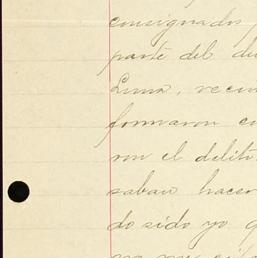 consignados
parte del du
Luna, vecin
formaron cu
ron el delito
saban hacer
do sido yo q